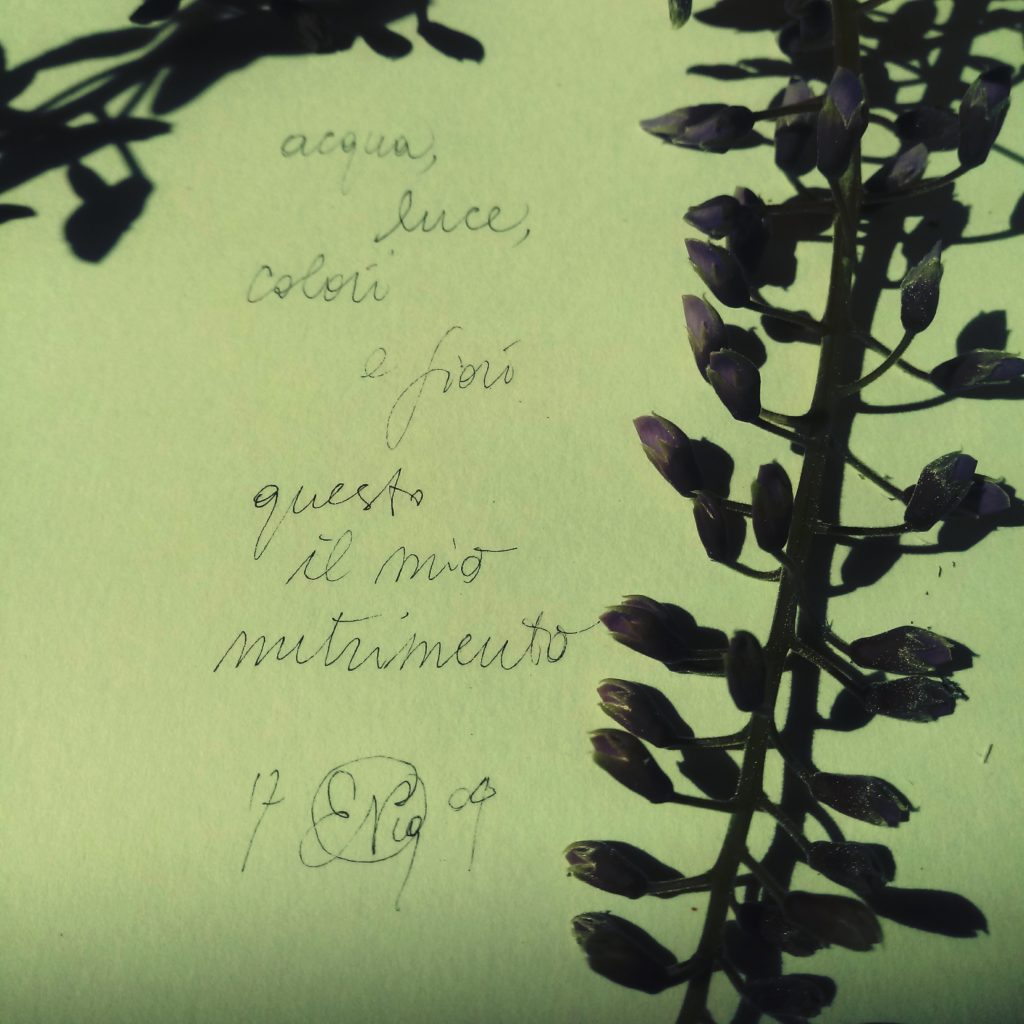 acqua,
luce,
colori
e fiori
questo
il mio
nutrimento
17 ENig 09